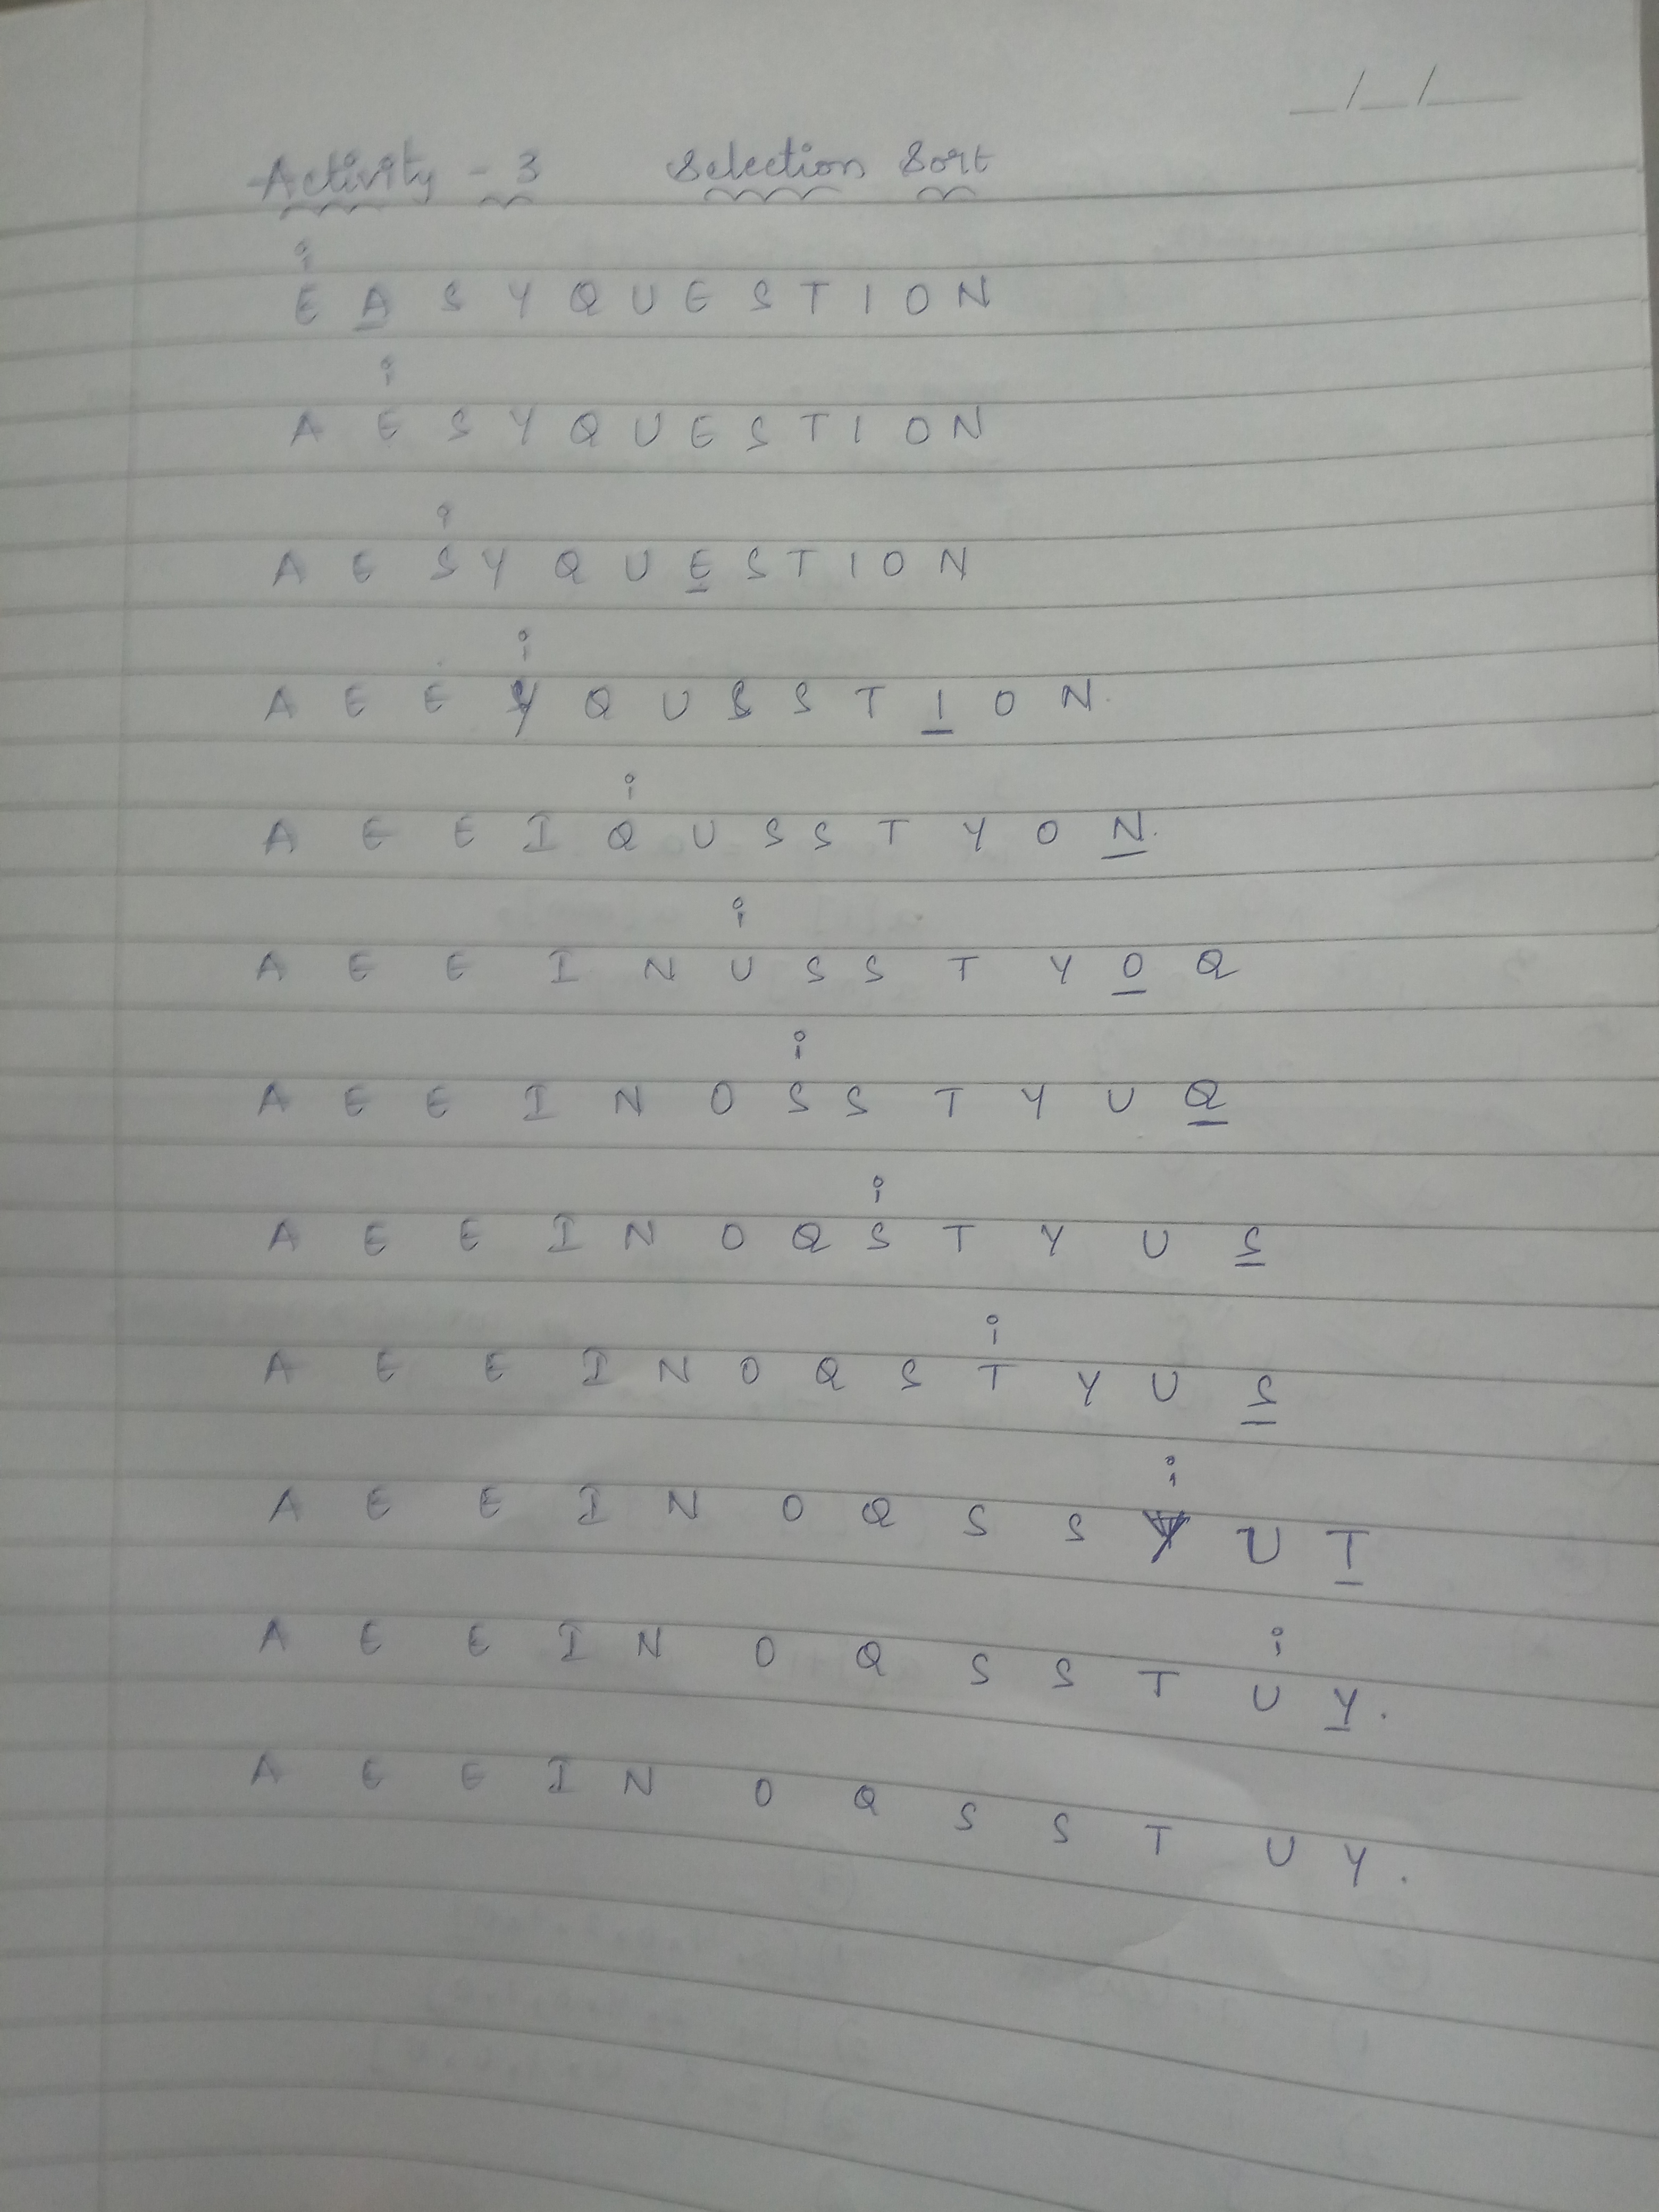 __/__/__
Activity - 3 Selection Sort
i
E A S Y Q U E S T I O N
i
A E S Y Q U E S T I O N
i
A E S Y Q U E S T I O N
i
A E E Y Q U S S T I O N.
i
A E E I Q U S S T Y O N.
i
A E E I N U S S T Y O Q
i
A E E I N O S S T Y U Q
i
A E E I N O Q S T Y U S
i
A E E I N O Q S T Y U S
i
A E E I N O Q S S Y U T
i
A E E I N O Q S S T U Y.
A E E I N O Q S S T U Y.